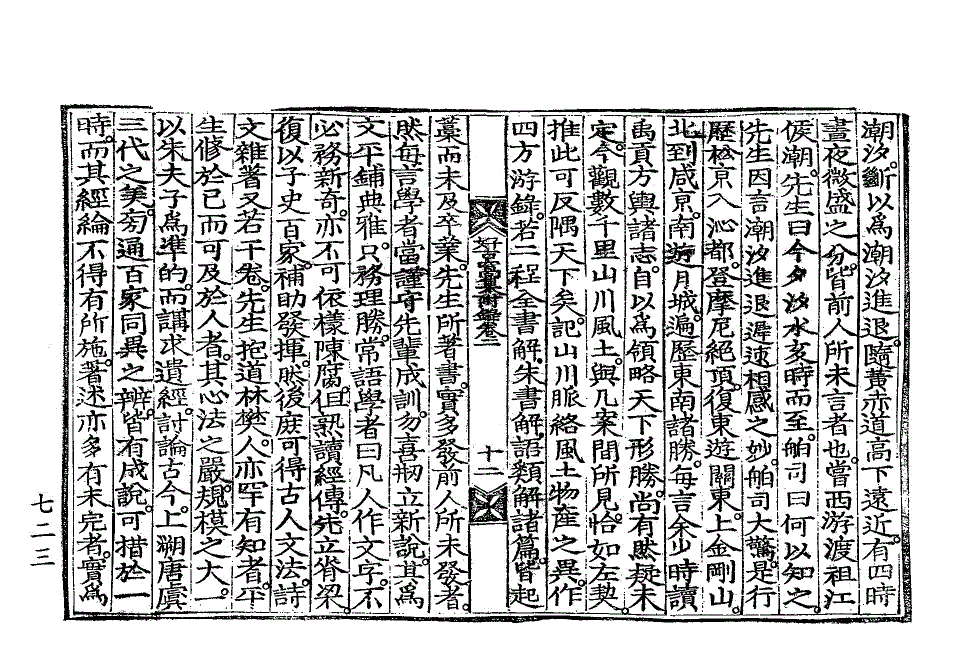 潮汐。斷以爲潮汐進退。隨黃赤道高下遠近。有四時
晝夜微盛之分。皆前人所未言者也。嘗西游渡祖江
俟潮。先生曰今夕汐水亥時而至。舶司曰何以知之。
先生因言潮汐進退遲速相感之妙。舶司大驚。是行
歷松京入沁都。登摩尼絕頂。復東遊關東。上金剛山。
北到咸京。南遊月城。遍歷東南諸勝。每言余少時讀
禹貢方輿諸志。自以爲領略天下形勝。尚有然疑未
定。今觀數千里山川風土。與几案間所見。恰如左契。
推此可反隅天下矣。記山川脈絡風土物産之異。作
四方游錄。若二程全書解。朱書解。語類解諸篇。皆起
附錄卷二
十二
藁而未及卒業。先生所著書。實多發前人所未發者。
然每言學者當謹守先輩成訓。勿喜刱立新說。其爲
文平鋪典雅。只務理勝。常語學者曰凡人作文字。不
必務新奇。亦不可依樣陳腐。但熟讀經傳。先立脊梁。
復以子史百家。補助發揮。然後庶可得古人文法。詩
文雜著又若干卷。先生抱道林樊。人亦罕有知者。平
生修於己而可及於人者。其心法之嚴。規模之大。一
以朱夫子爲準的。而講求遺經。討論古今。上溯唐虞
三代之美。旁通百家同異之辨。皆有成說。可措於一
時。而其經綸不得有所施。著述亦多有未完者。實爲
七二三